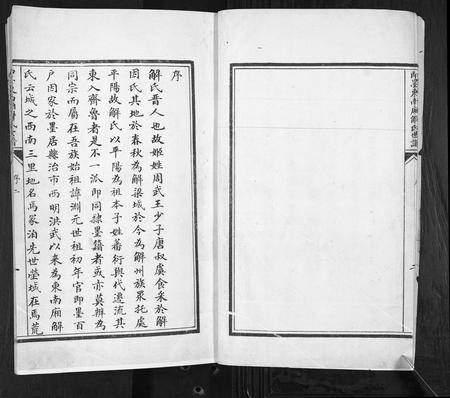 序
解氏晋人也故姬姓周武王少子唐叔虞食采於解
因氏其地於春秋為解梁城於今為解州族眾托處
平陽故解氏以平陽為祖本子姓蕃衍與代遷流其
東入齊魯者是不一派即同隸墨籍者或亦莫辨為
同宗而屬在吾族始祖諱淵元世祖初年官即墨百
戶因家於墨居縣治市西明洪武以来為東南廂解
氏云城之西南三里地名馬冢泊先世塋域在焉荒
序 二
即墨東南廂解氏世譜